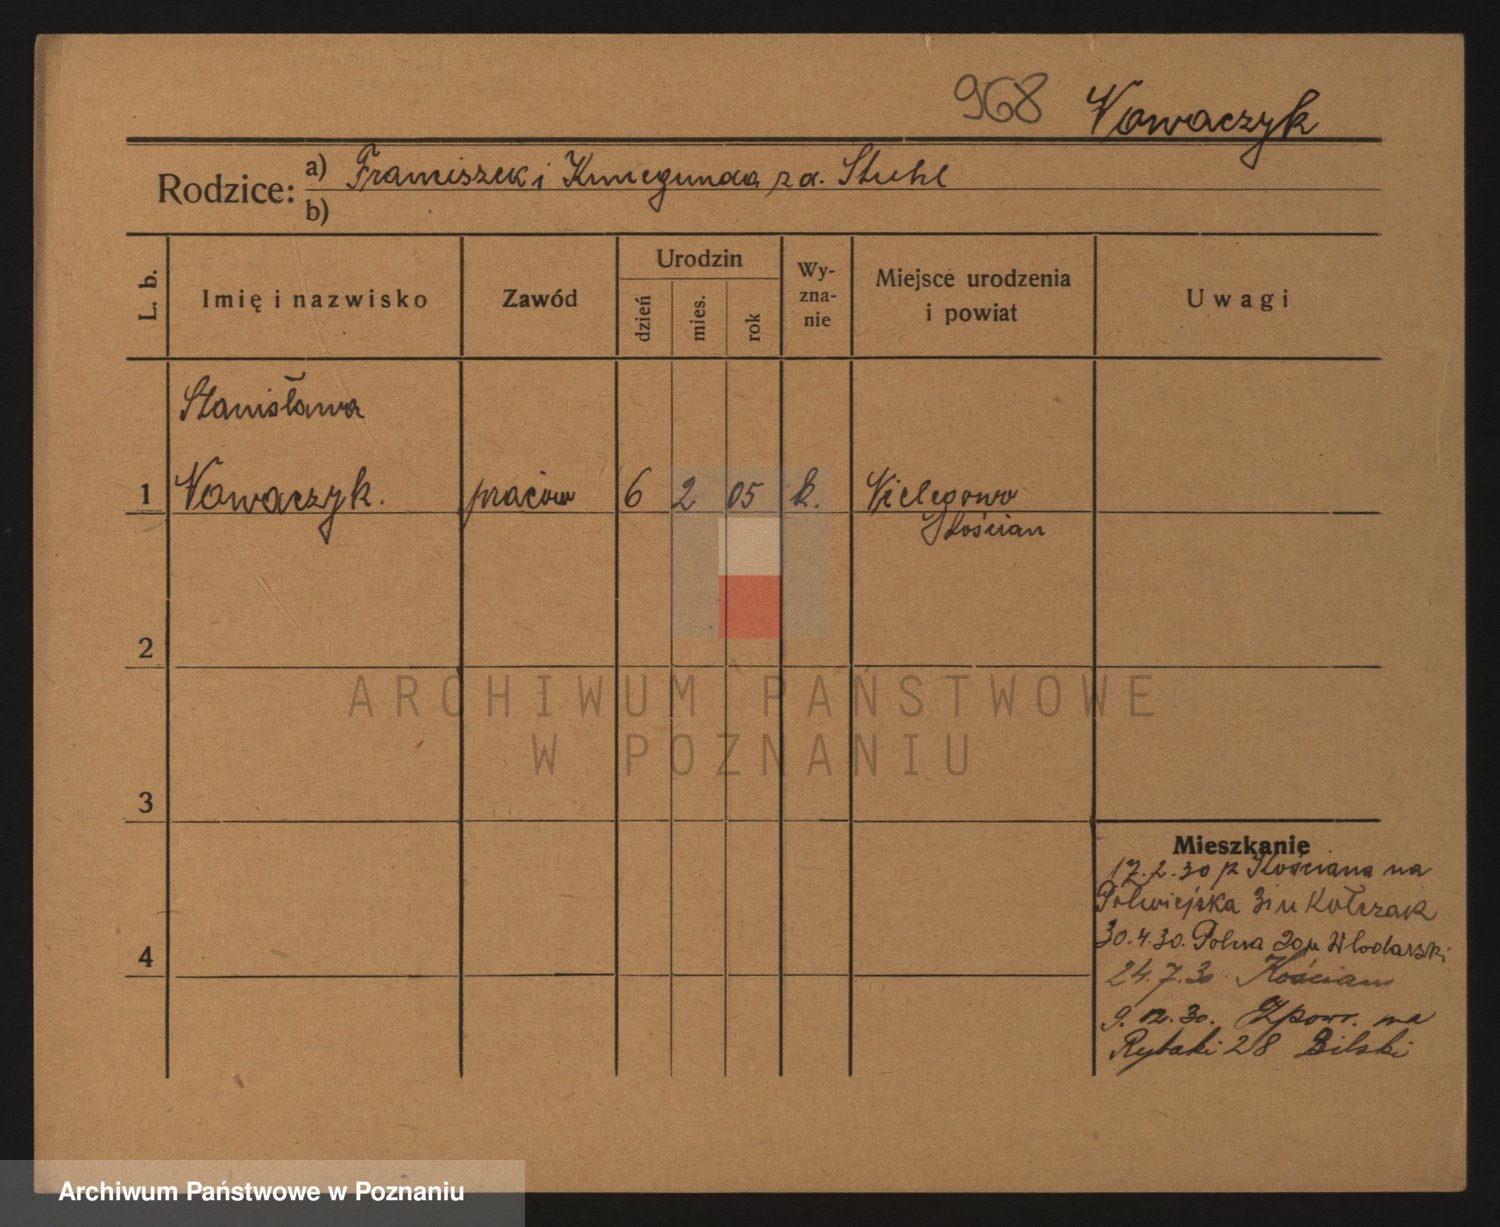 968 Nowaczyk
Rodzice: a) Franciszek i Kunegunda z d. Stuhl
b)
L. b.
Imię i nazwisko
Zawód
Urodzin
dzień
mies.
rok
Wy-
zna-
nie
Miejsce urodzenia
i powiat
Uwagi
Stanisława
1 Nowaczyk. pracow 6 2 05 k. Wielegowo
Kościan
2
3
4
Mieszkanie
17.2.30 z Kościana na
Półwiejska 31 u Kołczak
30.4.30. Polna 20 u Wlodarski
24.7.30. Kościan
9.12.30. Zpowr. na
Rybaki 28 Bilski
ARCHIWUM PAŃSTWOWE
W POZNANIU
Archiwum Państwowe w Poznaniu